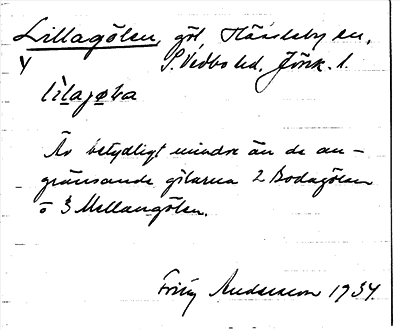 Lillagölen, göl Hässleby sn,
S. Vedbo hd, Jönk. l.
Är betydligt mindre än de an-
gränsande gölarna 2 Bodagölen
o 3 Mellangölen.
Fritz Andersson 1934.